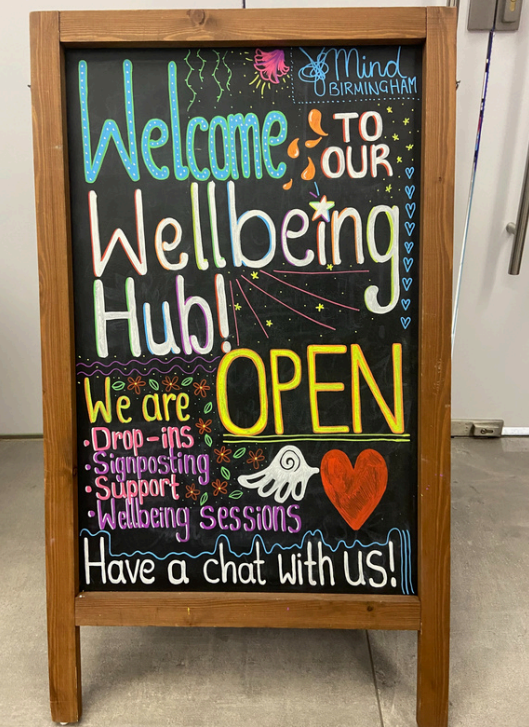 Mind
BIRMINGHAM
Welcome TO
OUR
Wellbeing
Hub!
We are OPEN
•Drop-ins
•Signposting
•Support
•Wellbeing sessions
Have a chat with us!